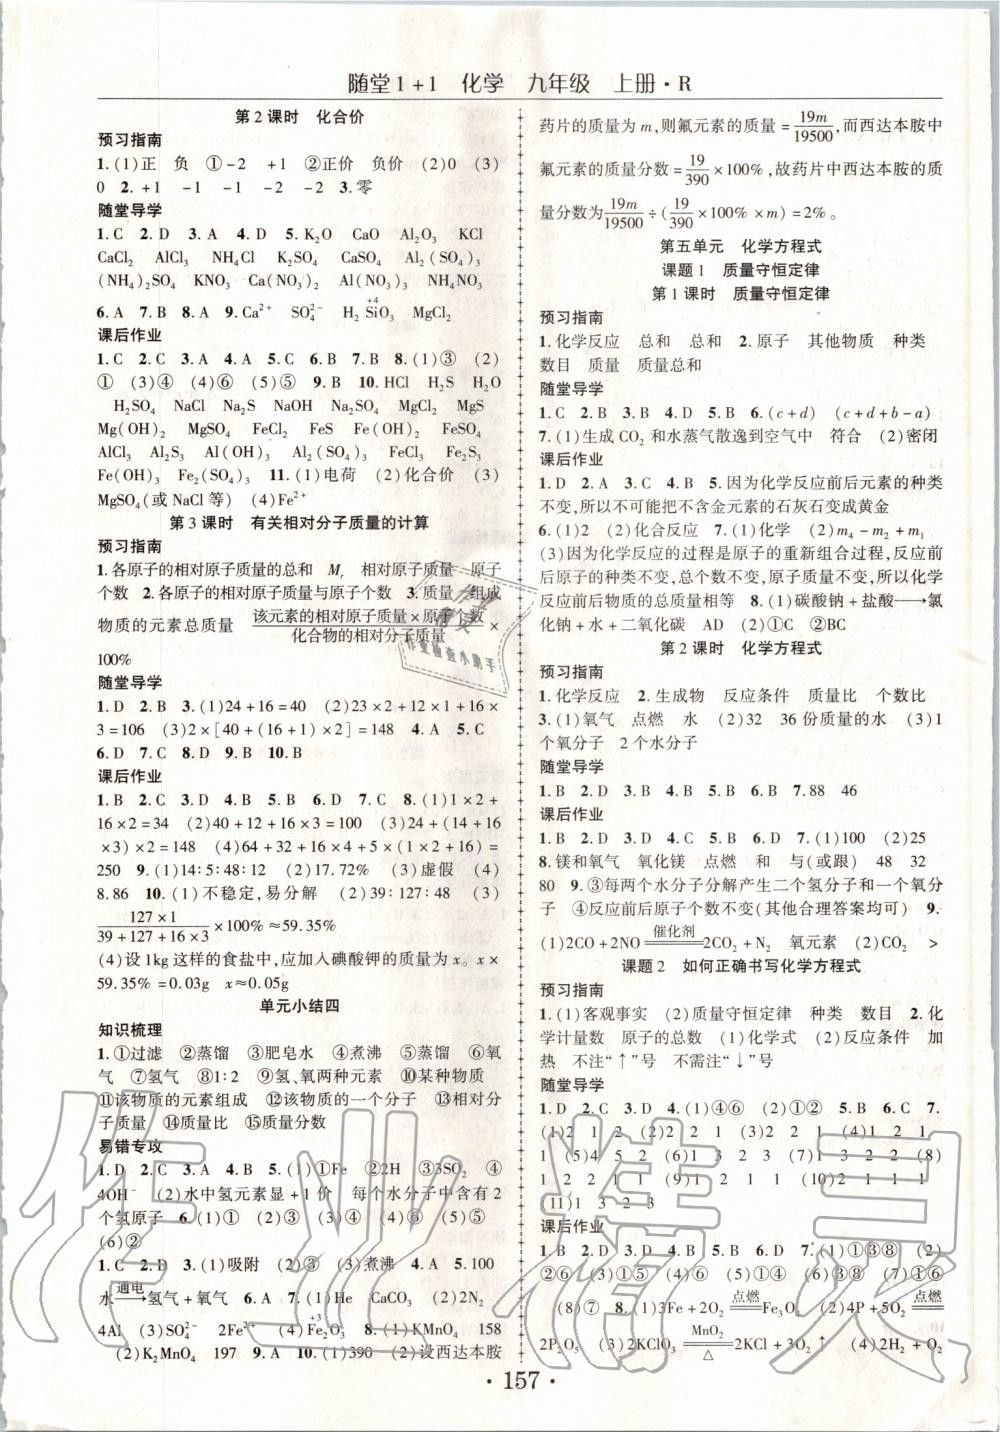 随堂1+1 化学 九年级 上册·R
第2课时 化合价
预习指南
1.(1)正 负 ①-2 +1 ②正价 负价 (2)0 (3)
0 2.+1 -1 -1 -2 -2 3.零
随堂导学
1.C 2.D 3.A 4.D 5.K₂O CaO Al₂O₃ KCl
CaCl₂ AlCl₃ NH₄Cl K₂SO₄ CaSO₄ Al₂(SO₄)₃
(NH₄)₂SO₄ KNO₃ Ca(NO₃)₂ Al(NO₃)₃ NH₄NO₃
6.A 7.B 8.A 9.Ca²⁺ SO₄²⁻ H₂SiO₃(+4) MgCl₂
课后作业
1.C 2.C 3.A 4.A 5.C 6.B 7.B 8.(1)③ (2)
① (3)④ (4)⑥ (5)⑤ 9.B 10.HCl H₂S H₂O
H₂SO₄ NaCl Na₂S NaOH Na₂SO₄ MgCl₂ MgS
Mg(OH)₂ MgSO₄ FeCl₂ FeS Fe(OH)₂ FeSO₄
AlCl₃ Al₂S₃ Al(OH)₃ Al₂(SO₄)₃ FeCl₃ Fe₂S₃
Fe(OH)₃ Fe₂(SO₄)₃ 11.(1)电荷 (2)化合价 (3)
MgSO₄(或NaCl等) (4)Fe²⁺
第3课时 有关相对分子质量的计算
预习指南
1.各原子的相对原子质量的总和 Mr 相对原子质量 原子
个数 2.各原子的相对原子质量与原子个数 3.质量 组成
物质的元素总质量 该元素的相对原子质量×原子个数/化合物的相对分子质量 ×
100%
随堂导学
1.D 2.B 3.(1)24+16=40 (2)23×2+12×1+16×
3=106 (3)2×[40+(16+1)×2]=148 4.A 5.C
6.D 7.C 8.D 9.B 10.B
课后作业
1.B 2.C 3.D 4.B 5.B 6.D 7.C 8.(1)1×2+
16×2=34 (2)40+12+16×3=100 (3)24+(14+16
×3)×2=148 (4)64+32+16×4+5×(1×2+16)=
250 9.(1)14:5:48:12 (2)17.72% (3)虚假 (4)
8.86 10.(1)不稳定,易分解 (2)39:127:48 (3)
127×1/39+127+16×3 ×100%≈59.35%
(4)设1kg这样的食盐中,应加入碘酸钾的质量为x。x×
59.35%=0.03g x≈0.05g
单元小结四
知识梳理
1.①过滤 ②蒸馏 ③肥皂水 ④煮沸 ⑤蒸馏 ⑥氧
气 ⑦氢气 ⑧1:2 ⑨氢、氧两种元素 ⑩某种物质
⑪该物质的元素组成 ⑫该物质的一个分子 ⑬相对分
子质量 ⑭质量比 ⑮质量分数
易错专攻
1.D 2.C 3.A 4.B 5.(1)①Fe ②2H ③3SO₂ ④
4OH⁻ (2)水中氢元素显+1价 每个水分子中含有2
个氢原子 6.(1)① (2)③ (3)⑥ (4)④ (5)⑤
(6)②
1.C 2.D 3.(1)吸附 (2)③ (3)煮沸 4.A 5.100
水—通电→氢气+氧气 6.A 7.(1)He CaCO₃ (2)2N₂
4Al (3)SO₄²⁻ 2Fe²⁺ (4)Fe₂O₃(+3) 8.(1)KMnO₄ 158
(2)K₂MnO₄ 197 9.A 10.(1)390 (2)设西达本胺
药片的质量为m,则氟元素的质量=19m/19500,而西达本胺中
氟元素的质量分数=19/390×100%,故药片中西达本胺的质
量分数为19m/19500÷(19/390×100%×m)=2%。
第五单元 化学方程式
课题1 质量守恒定律
第1课时 质量守恒定律
预习指南
1.化学反应 总和 总和 2.原子 其他物质 种类
数目 质量 质量总和
随堂导学
1.C 2.B 3.B 4.D 5.B 6.(c+d) (c+d+b-a)
7.(1)生成CO₂和水蒸气散逸到空气中 符合 (2)密闭
课后作业
1.D 2.A 3.A 4.B 5.因为化学反应前后元素的种类
不变,所以不可能把不含金元素的石灰石变成黄金
6.(1)2 (2)化合反应 7.(1)化学 (2)m₄-m₂+m₁
(3)因为化学反应的过程是原子的重新组合过程,反应前
后原子的种类不变,总个数不变,原子质量不变,所以化学
反应前后物质的总质量相等 8.(1)碳酸钠+盐酸→氯
化钠+水+二氧化碳 AD (2)①C ②BC
第2课时 化学方程式
预习指南
1.化学反应 2.生成物 反应条件 质量比 个数比
3.(1)氧气 点燃 水 (2)32 36份质量的水 (3)1
个氧分子 2个水分子
随堂导学
1.B 2.D 3.D 4.B 5.B 6.B 7.88 46
课后作业
1.B 2.D 3.D 4.B 5.B 6.D 7.(1)100 (2)25
8.镁和氧气 氧化镁 点燃 和 与(或跟) 48 32
80 9.③每两个水分子分解产生二个氢分子和一个氧分
子 ④反应前后原子个数不变(其他合理答案均可) 9.
(1)2CO+2NO=催化剂=2CO₂+N₂ 氧元素 (2)CO₂ >
课题2 如何正确书写化学方程式
预习指南
1.(1)客观事实 (2)质量守恒定律 种类 数目 2.化
学计量数 原子的总数 (1)化学式 (2)反应条件 加
热 不注“↑”号 不需注“↓”号
随堂导学
1.D 2.B 3.D 4.(1)④⑥ (2)①② 5.B 6.C 7.
(1)2 1 2 (2)4 3 2 (3)2 2 1 (4)1 2 1
1 (5)4 5 2 (6)1 3 2 3 (7)1 3 2 2 (8)
1 2 2 1 1 (9)1 2 1 1 (10)2 1 1 1
(11)1 3 2 3
课后作业
1.B 2.D 7.(1)①③⑧ (2)
(7)①⑥
(8)⑦ 8.(1)3Fe+2O₂=点燃=Fe₃O₄ (2)4P+5O₂=点燃=
2P₂O₅ (3)2KClO₃=MnO₂/△=2KCl+3O₂↑ (4)2H₂+O₂
·157·
作业精灵
作业检查小助手